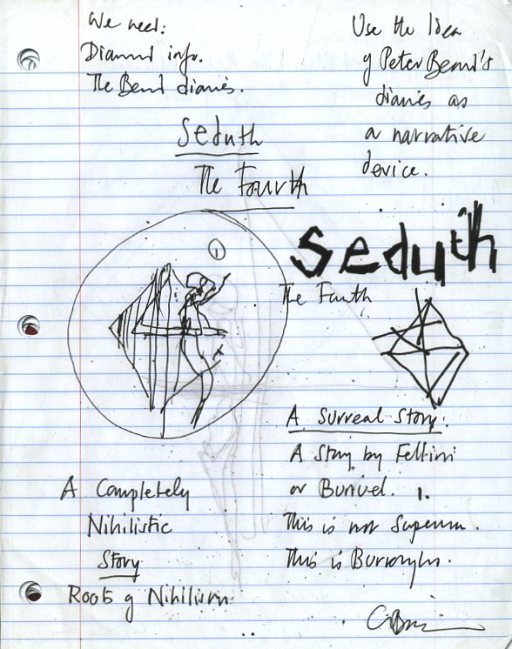 We need:
Diamond info.
The Beard diaries.
Use the Idea
of Peter Beard's
diaries as
a narrative
device.
Seduth
The Fourth
1
Seduth
The Fourth
A Surreal Story.
A Story by Fellini
or Bunuel. 1.
This is not Superman.
This is Burroughs.
A Completely
Nihilistic
Story
Roots of Nihilism